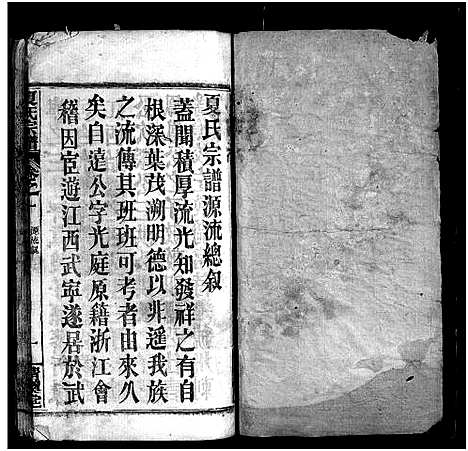 夏氏宗譜源流總叙
蓋聞積厚流光知發祥之有自
根深葉茂溯明德以非遥我族
之流傳其班班可考者由來久
矣自達公字光庭原籍浙江會
稽因宦遊江西武寧遂居於武
夏氏宗譜 卷之一 源流叙 一